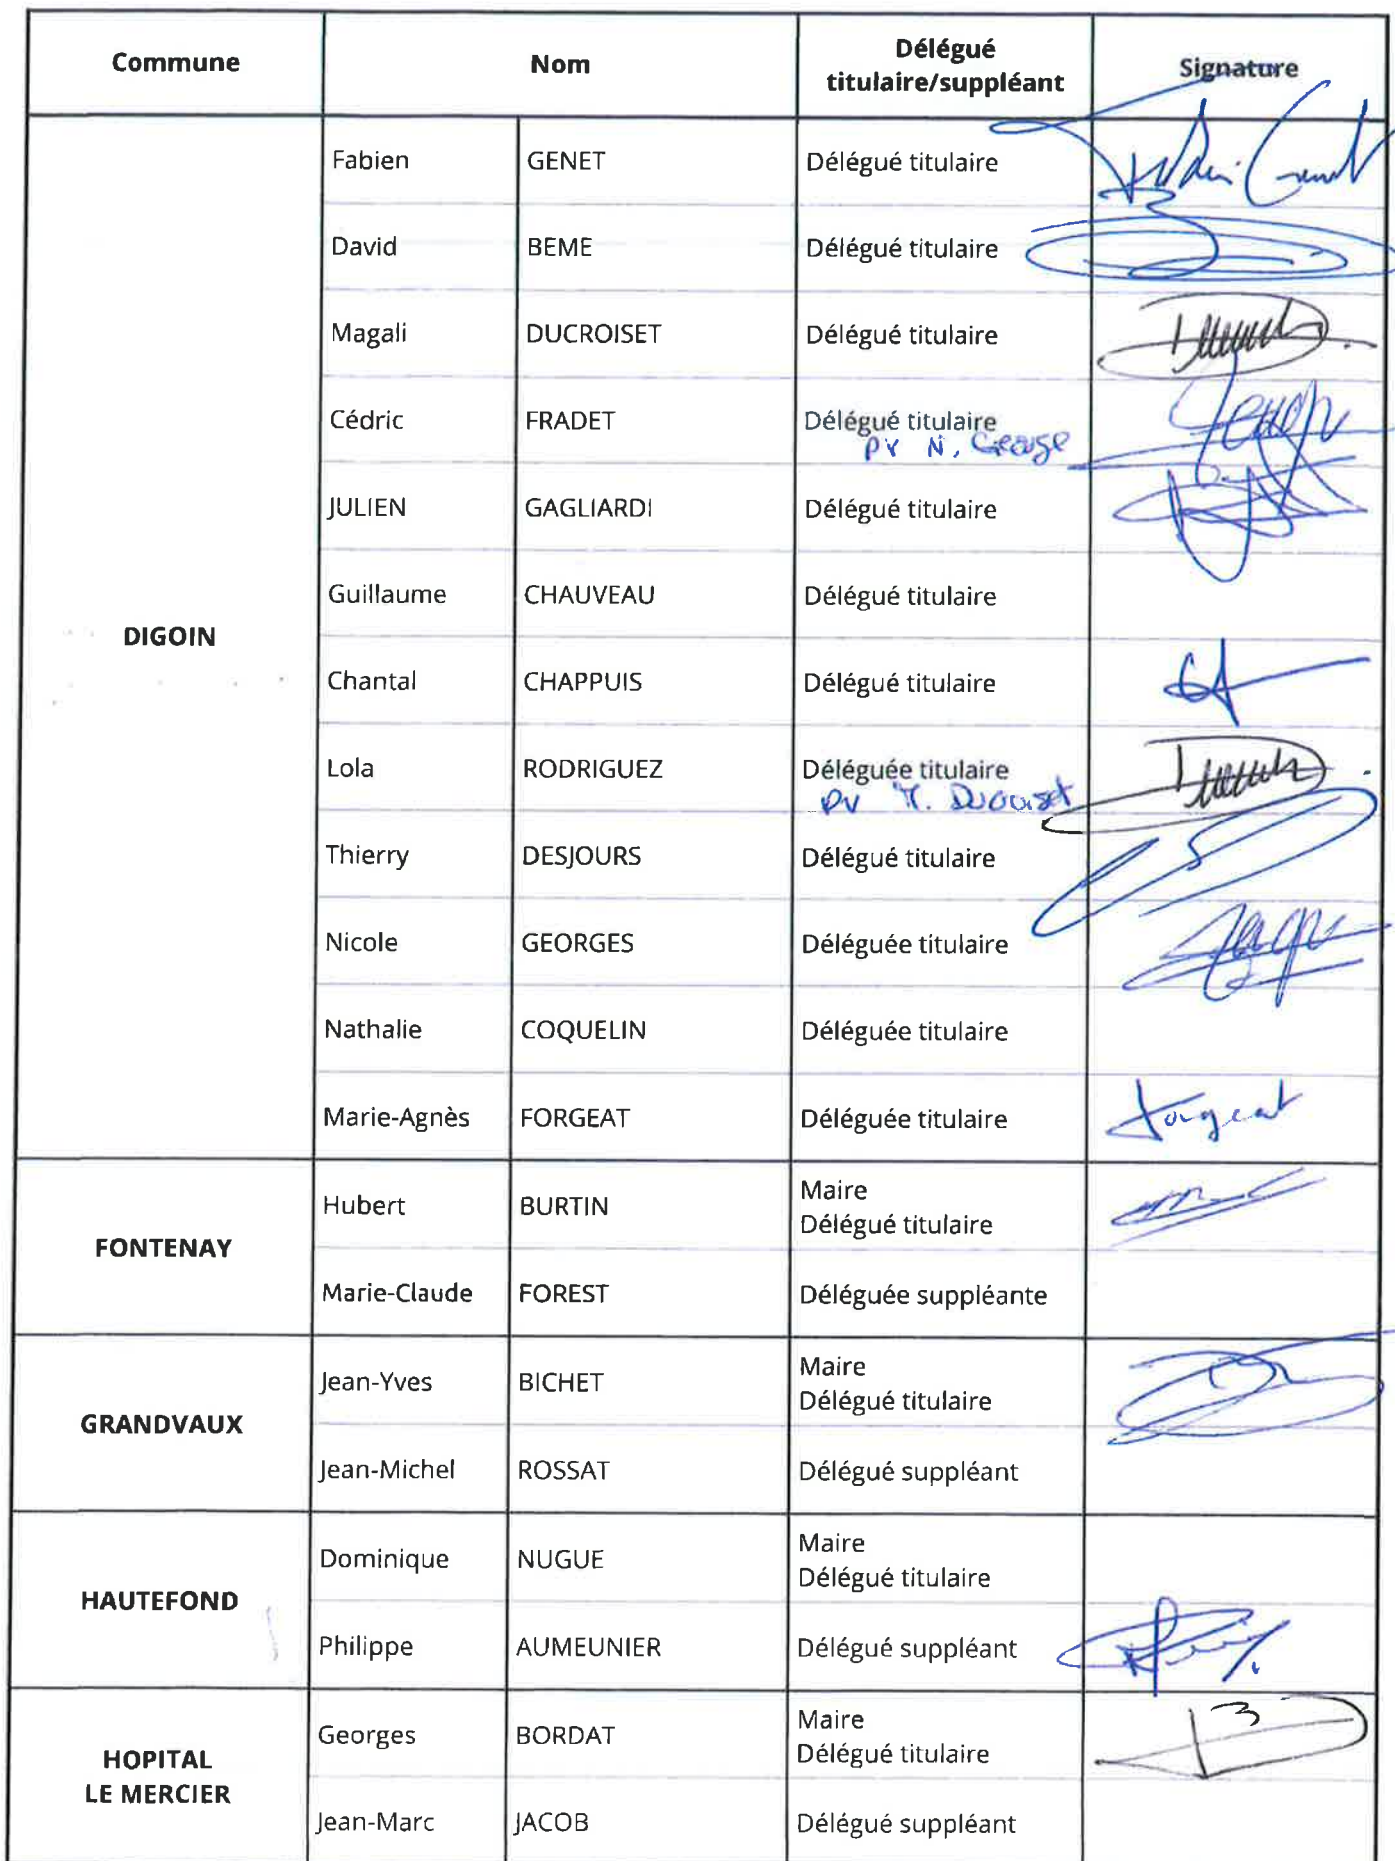 Commune Nom Délégué titulaire/suppléant Signature
DIGOIN
Fabien GENET Délégué titulaire Fabien Genet
David BEME Délégué titulaire
Magali DUCROISET Délégué titulaire
Cédric FRADET Délégué titulaire
pv N. George
JULIEN GAGLIARDI Délégué titulaire
Guillaume CHAUVEAU Délégué titulaire
Chantal CHAPPUIS Délégué titulaire
Lola RODRIGUEZ Déléguée titulaire
pv M. Ducroiset
Thierry DESJOURS Délégué titulaire
Nicole GEORGES Déléguée titulaire
Nathalie COQUELIN Déléguée titulaire
Marie-Agnès FORGEAT Déléguée titulaire Forgeat
FONTENAY
Hubert BURTIN Maire
Délégué titulaire
Marie-Claude FOREST Déléguée suppléante
GRANDVAUX
Jean-Yves BICHET Maire
Délégué titulaire
Jean-Michel ROSSAT Délégué suppléant
HAUTEFOND
Dominique NUGUE Maire
Délégué titulaire
Philippe AUMEUNIER Délégué suppléant
HOPITAL
LE MERCIER
Georges BORDAT Maire
Délégué titulaire
Jean-Marc JACOB Délégué suppléant